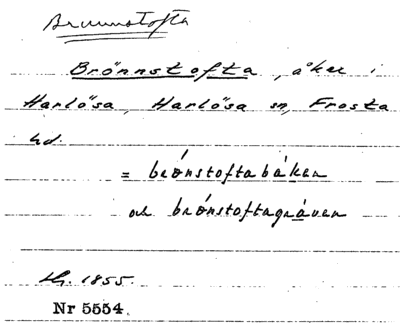 Brunnstofta
Brönnstofta, åker i
Harlösa, Harlösa sn, Frosta
hd.
= brønstoftabáken
och brønstoftagráven
1855.
Nr 5554.